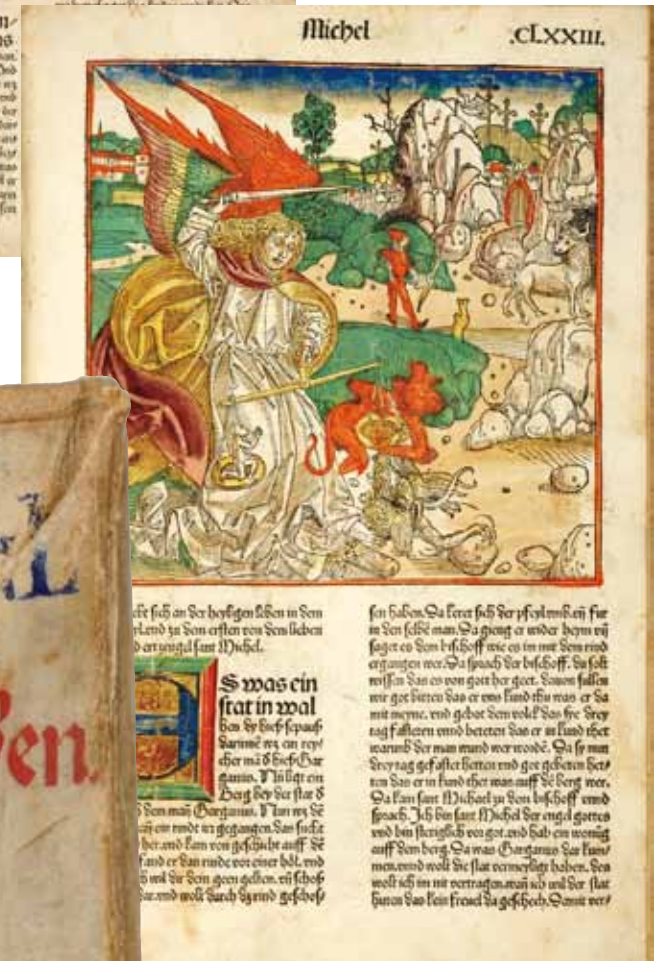 Michel .CLXXIII.
sich an der heyligen leben in dem
vnd zu dem ersten von dem lieben
ertzengel sant Michel.
S was ein
stat in wal
hen dy hieß sepauß
darinnē wz ein rey/
cher mā d hieß Gar
ganus. Nū ligt ein
Berg bey der stat d
dem mañ Garganus. Nun wz dē
ein rindt gegangen. das sucht
her. vnd kam von geschicht auff dē
fand er das rinde vor einer höl. vnd
wil dir dein geen gelten. vñ schoß
dar. vnd wolt durch dz rind geschos/
sen haben. Da keret sich der pfeyl vmb. vñ fur
in den selbē man. Da gieng er wider heym vñ
saget es dem bischoff wie es im mit dem rind
ergangen wer. Da sprach der bischoff. du solt
wissen das es von got her geet. dauon süllen
wir got bitten das er vns kund thu was er da
mit meyne. vnd gebot dem volck das sye drey
tag fasteten vnd beteten das er in kund thet
warumb der man wund wer wordē. Da sy nun
drey tag gefastet hetten vnd got gebeten het/
ten das er in kund thet was auff dē berg wer.
Da kam sant Michael zu dem bischoff vnnd
sprach. Ich bin sant Michel der engel gottes
vnd bin stetiglich vor got. vnd hab ein wonūg
auff dem berg. Da was Garganus dar kum/
men. vnnd wolt die stat vermeyligt haben. des
wolt ich im nit vertragen. wañ ich wil der stat
hüten das kein freuel da geschech. Damit ver/
en.